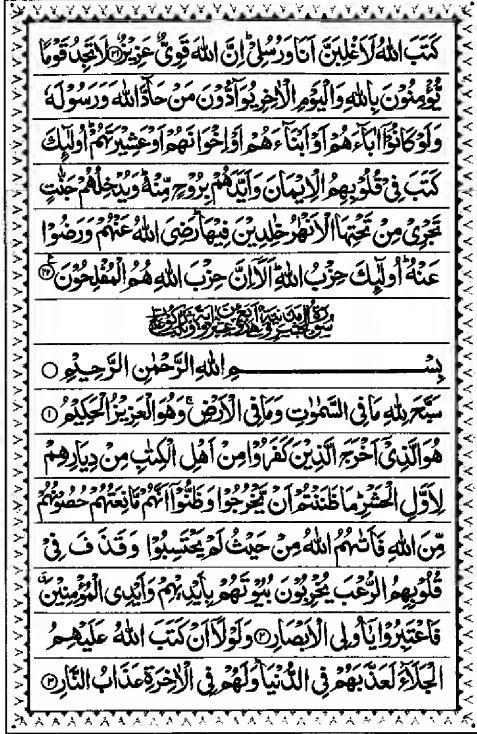 كَتَبَ اللّٰهُ لَاَغْلِبَنَّ اَنَا وَرُسُلِیْ ؕ اِنَّ اللّٰهَ قَوِیٌّ عَزِیْزٌ ۝۲۱ لَا تَجِدُ قَوْمًا
یُّؤْمِنُوْنَ بِاللّٰهِ وَالْیَوْمِ الْاٰخِرِ یُوَآدُّوْنَ مَنْ حَآدَّ اللّٰهَ وَرَسُوْلَهٗ
وَلَوْ كَانُوْۤا اٰبَآءَهُمْ اَوْ اَبْنَآءَهُمْ اَوْ اِخْوَانَهُمْ اَوْ عَشِیْرَتَهُمْ ؕ اُولٰٓىِٕكَ
كَتَبَ فِیْ قُلُوْبِهِمُ الْاِیْمَانَ وَاَیَّدَهُمْ بِرُوْحٍ مِّنْهُ ؕ وَیُدْخِلُهُمْ جَنّٰتٍ
تَجْرِیْ مِنْ تَحْتِهَا الْاَنْهٰرُ خٰلِدِیْنَ فِیْهَا ؕ رَضِیَ اللّٰهُ عَنْهُمْ وَرَضُوْا
عَنْهُ ؕ اُولٰٓىِٕكَ حِزْبُ اللّٰهِ ؕ اَلَاۤ اِنَّ حِزْبَ اللّٰهِ هُمُ الْمُفْلِحُوْنَ ۝۲۲
بِسْمِ اللّٰهِ الرَّحْمٰنِ الرَّحِیْمِ ۝
سَبَّحَ لِلّٰهِ مَا فِی السَّمٰوٰتِ وَمَا فِی الْاَرْضِ ۚ وَهُوَ الْعَزِیْزُ الْحَكِیْمُ ۝۱
هُوَ الَّذِیْۤ اَخْرَجَ الَّذِیْنَ كَفَرُوْا مِنْ اَهْلِ الْكِتٰبِ مِنْ دِیَارِهِمْ
لِاَوَّلِ الْحَشْرِ ؕ مَا ظَنَنْتُمْ اَنْ یَّخْرُجُوْا وَظَنُّوْۤا اَنَّهُمْ مَّانِعَتُهُمْ حُصُوْنُهُمْ
مِّنَ اللّٰهِ فَاَتٰىهُمُ اللّٰهُ مِنْ حَیْثُ لَمْ یَحْتَسِبُوْا ۗ وَقَذَفَ فِیْ
قُلُوْبِهِمُ الرُّعْبَ یُخْرِبُوْنَ بُیُوْتَهُمْ بِاَیْدِیْهِمْ وَاَیْدِی الْمُؤْمِنِیْنَ ۗ
فَاعْتَبِرُوْا یٰۤاُولِی الْاَبْصَارِ ۝۲ وَلَوْلَاۤ اَنْ كَتَبَ اللّٰهُ عَلَیْهِمُ
الْجَلَآءَ لَعَذَّبَهُمْ فِی الدُّنْیَا ؕ وَلَهُمْ فِی الْاٰخِرَةِ عَذَابُ النَّارِ ۝۳